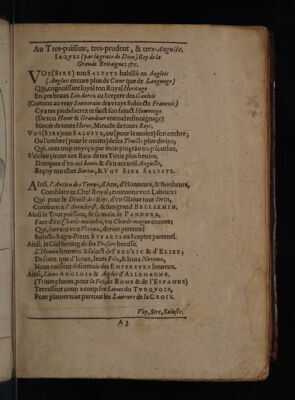 Au Tres-puissant, tres-prudent, & tres-Auguste,
IAQUES (par la grace de Dieu) Roy de la
Grande Britaigne, &c.
VOY (SIRE) ton SALVSTE habillé en Anglois
(Anglois encore plus de Cœur que de Language)
Qui, cognoissant loyal ton Royal Heritage
En ces beaux au Sceptre des Gaulois
(Comme au vray Souverain des vrays Subiects François)
Cy à tes pieds sacrez te faict son sainct Hommage
(De ton Heur & Grandeur eternel tesmoignage)
Miroir de touts Heros, Miracle de touts Roys,
VOY (SIRE) ton SALVSTE, ou (pour le moins) son ombre;
Ou l'ombre (pour le moins) de ses Traicts plus divins;
Qui, ores trop noyrcis par mon pinceau trop sombre,
S'esclairciront aux Rais de tes Yeux plus benins.
Donques d'un œil benin & d'un accueil Auguste,
Reçoy ton cher Bartas, & VOY SIRE SALVSTE.
AINSI, l'Ancien des Temps, d'Ans, d'Honneurs, & Bonheurs,
Comblant ce Chef Royal; couronne vos Labeurs
Qui pour le Droict des Roys, d'un Glaive tout divin,
Combatez l'Antechrist, & son grand BELLARMIN.
Ainsi le Tout puissant, de la main de PANDORE,
Face d'un Charle-moindre, un Charle-magne encore;
Qui, suivant vos Vertus, devint personel
Saincts-Sages-Preux STVARTS au Sceptre paternel.
Ainsi, le Ciel bening de ses Tresors benisse,
L'Hymen heureux & sainct de FREDERIC & d'ELIZE;
De sorte, que d'Iceux, leurs Fils, & leurs Neveux,
Nous naissent desormais des EMPEREVRS heureux.
Ainsi, Lions ANGLOIS & Aigles d'ALLEMAGNE,
(Triumphantes, pour la Foy, de ROME & de l'ESPAGNE)
Terrassent coup à coup les Lunes du TVRQVOIS,
Pour planter tout par tout les Lauriers de la CROIX.
Voy, Sire, Saluste.
A3